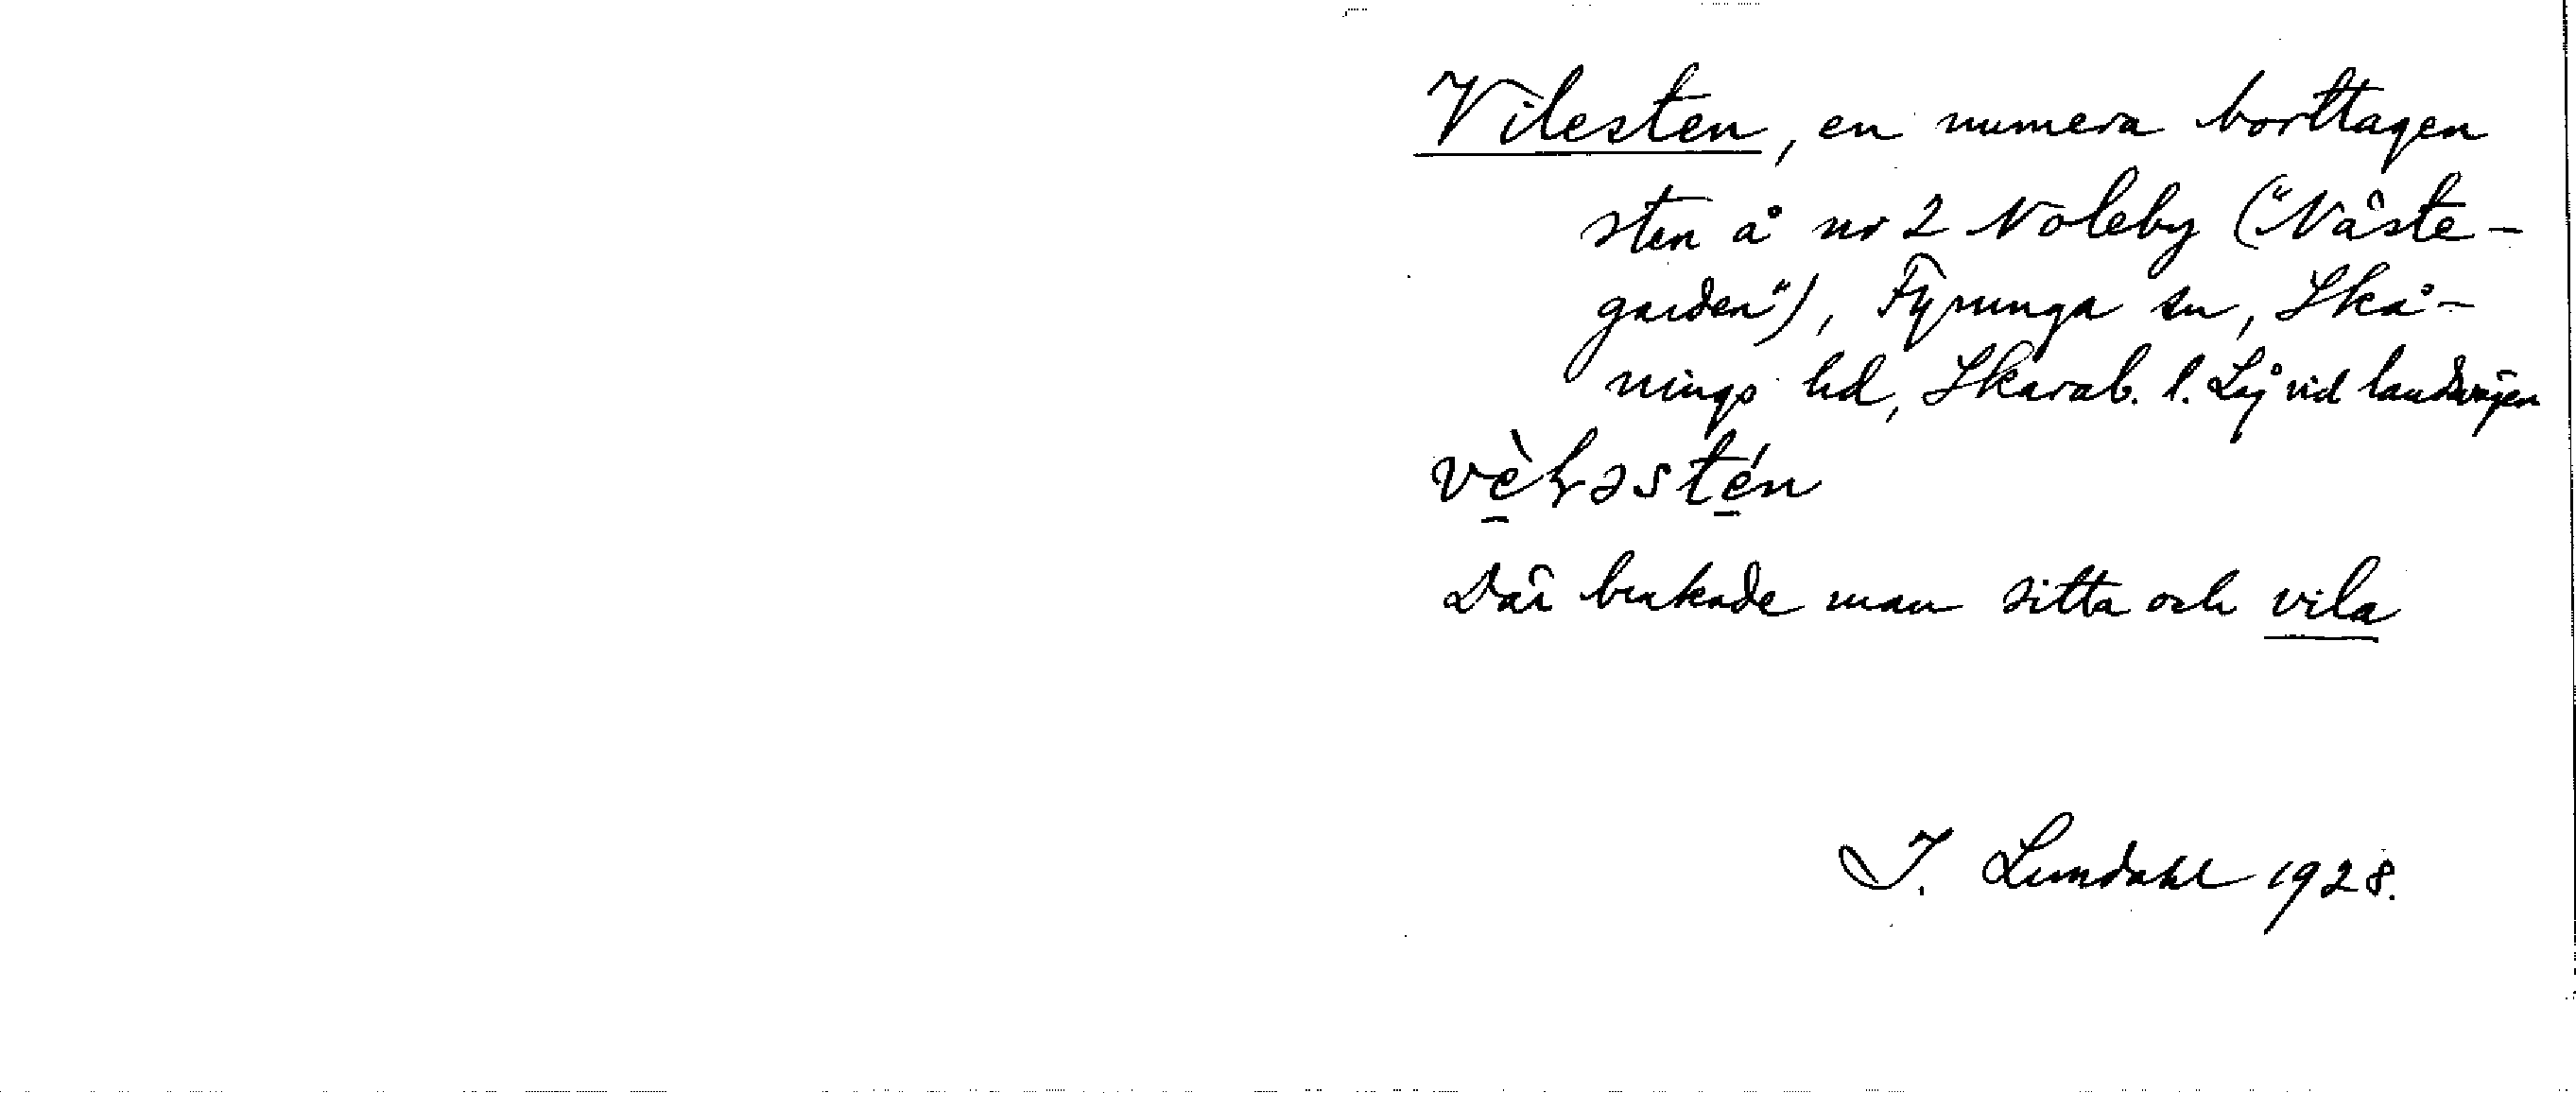 Vilesten, en numera borttagen
sten å nr 2 Noleby ("Näste-
garden"), Fyrunga sn, Skå-
nings hd, Skarab. l. Låg vid landsvägen
vèl̨əstén
Där brukade man sitta och vila
I. Lundahl 1928.